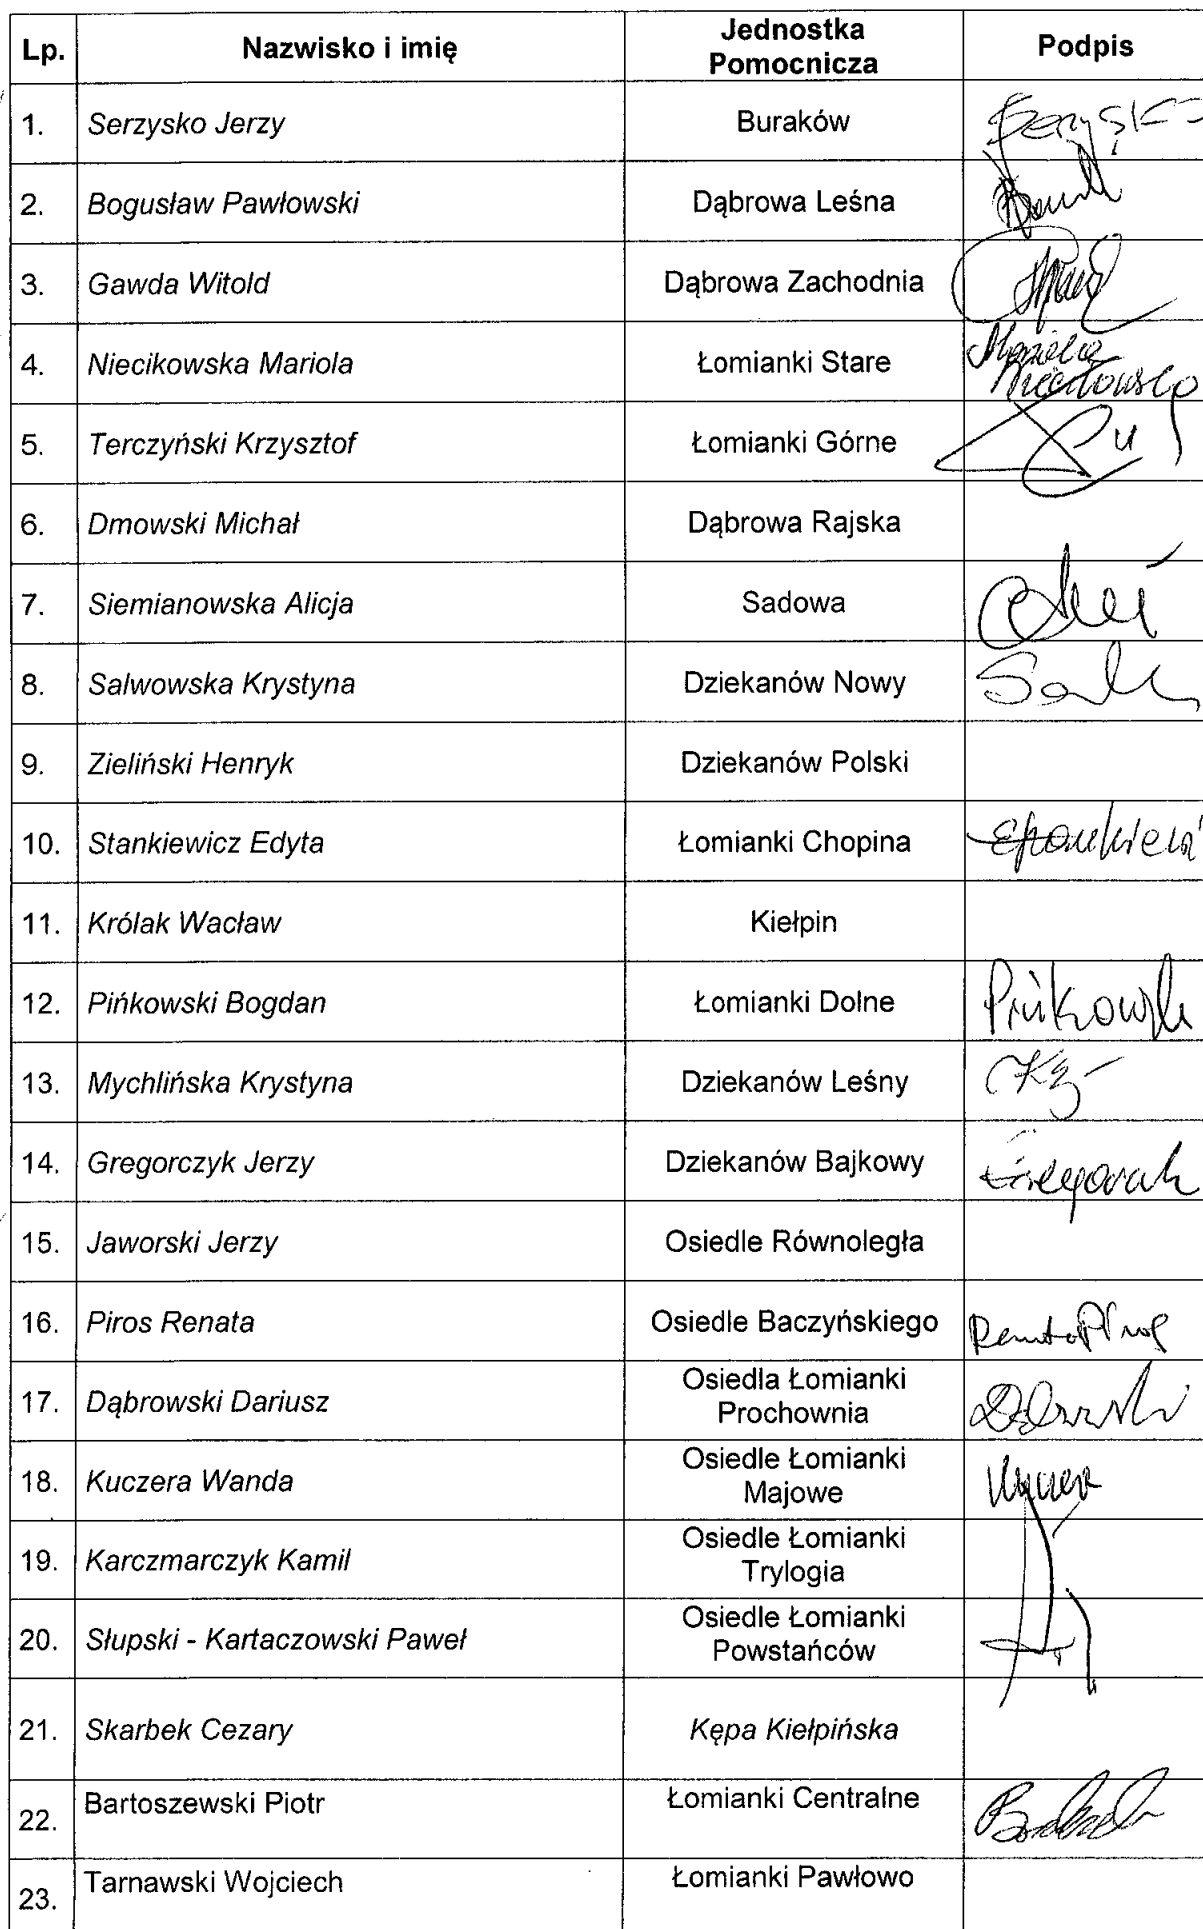 Lp. Nazwisko i imię Jednostka Pomocnicza Podpis
1. Serzysko Jerzy Buraków Serzysko
2. Bogusław Pawłowski Dąbrowa Leśna
3. Gawda Witold Dąbrowa Zachodnia
4. Niecikowska Mariola Łomianki Stare
5. Terczyński Krzysztof Łomianki Górne
6. Dmowski Michał Dąbrowa Rajska
7. Siemianowska Alicja Sadowa
8. Salwowska Krystyna Dziekanów Nowy
9. Zieliński Henryk Dziekanów Polski
10. Stankiewicz Edyta Łomianki Chopina
11. Królak Wacław Kiełpin
12. Pińkowski Bogdan Łomianki Dolne
13. Mychlińska Krystyna Dziekanów Leśny
14. Gregorczyk Jerzy Dziekanów Bajkowy
15. Jaworski Jerzy Osiedle Równoległa
16. Piros Renata Osiedle Baczyńskiego
17. Dąbrowski Dariusz Osiedla Łomianki Prochownia
18. Kuczera Wanda Osiedle Łomianki Majowe
19. Karczmarczyk Kamil Osiedle Łomianki Trylogia
20. Słupski - Kartaczowski Paweł Osiedle Łomianki Powstańców
21. Skarbek Cezary Kępa Kiełpińska
22. Bartoszewski Piotr Łomianki Centralne
23. Tarnawski Wojciech Łomianki Pawłowo